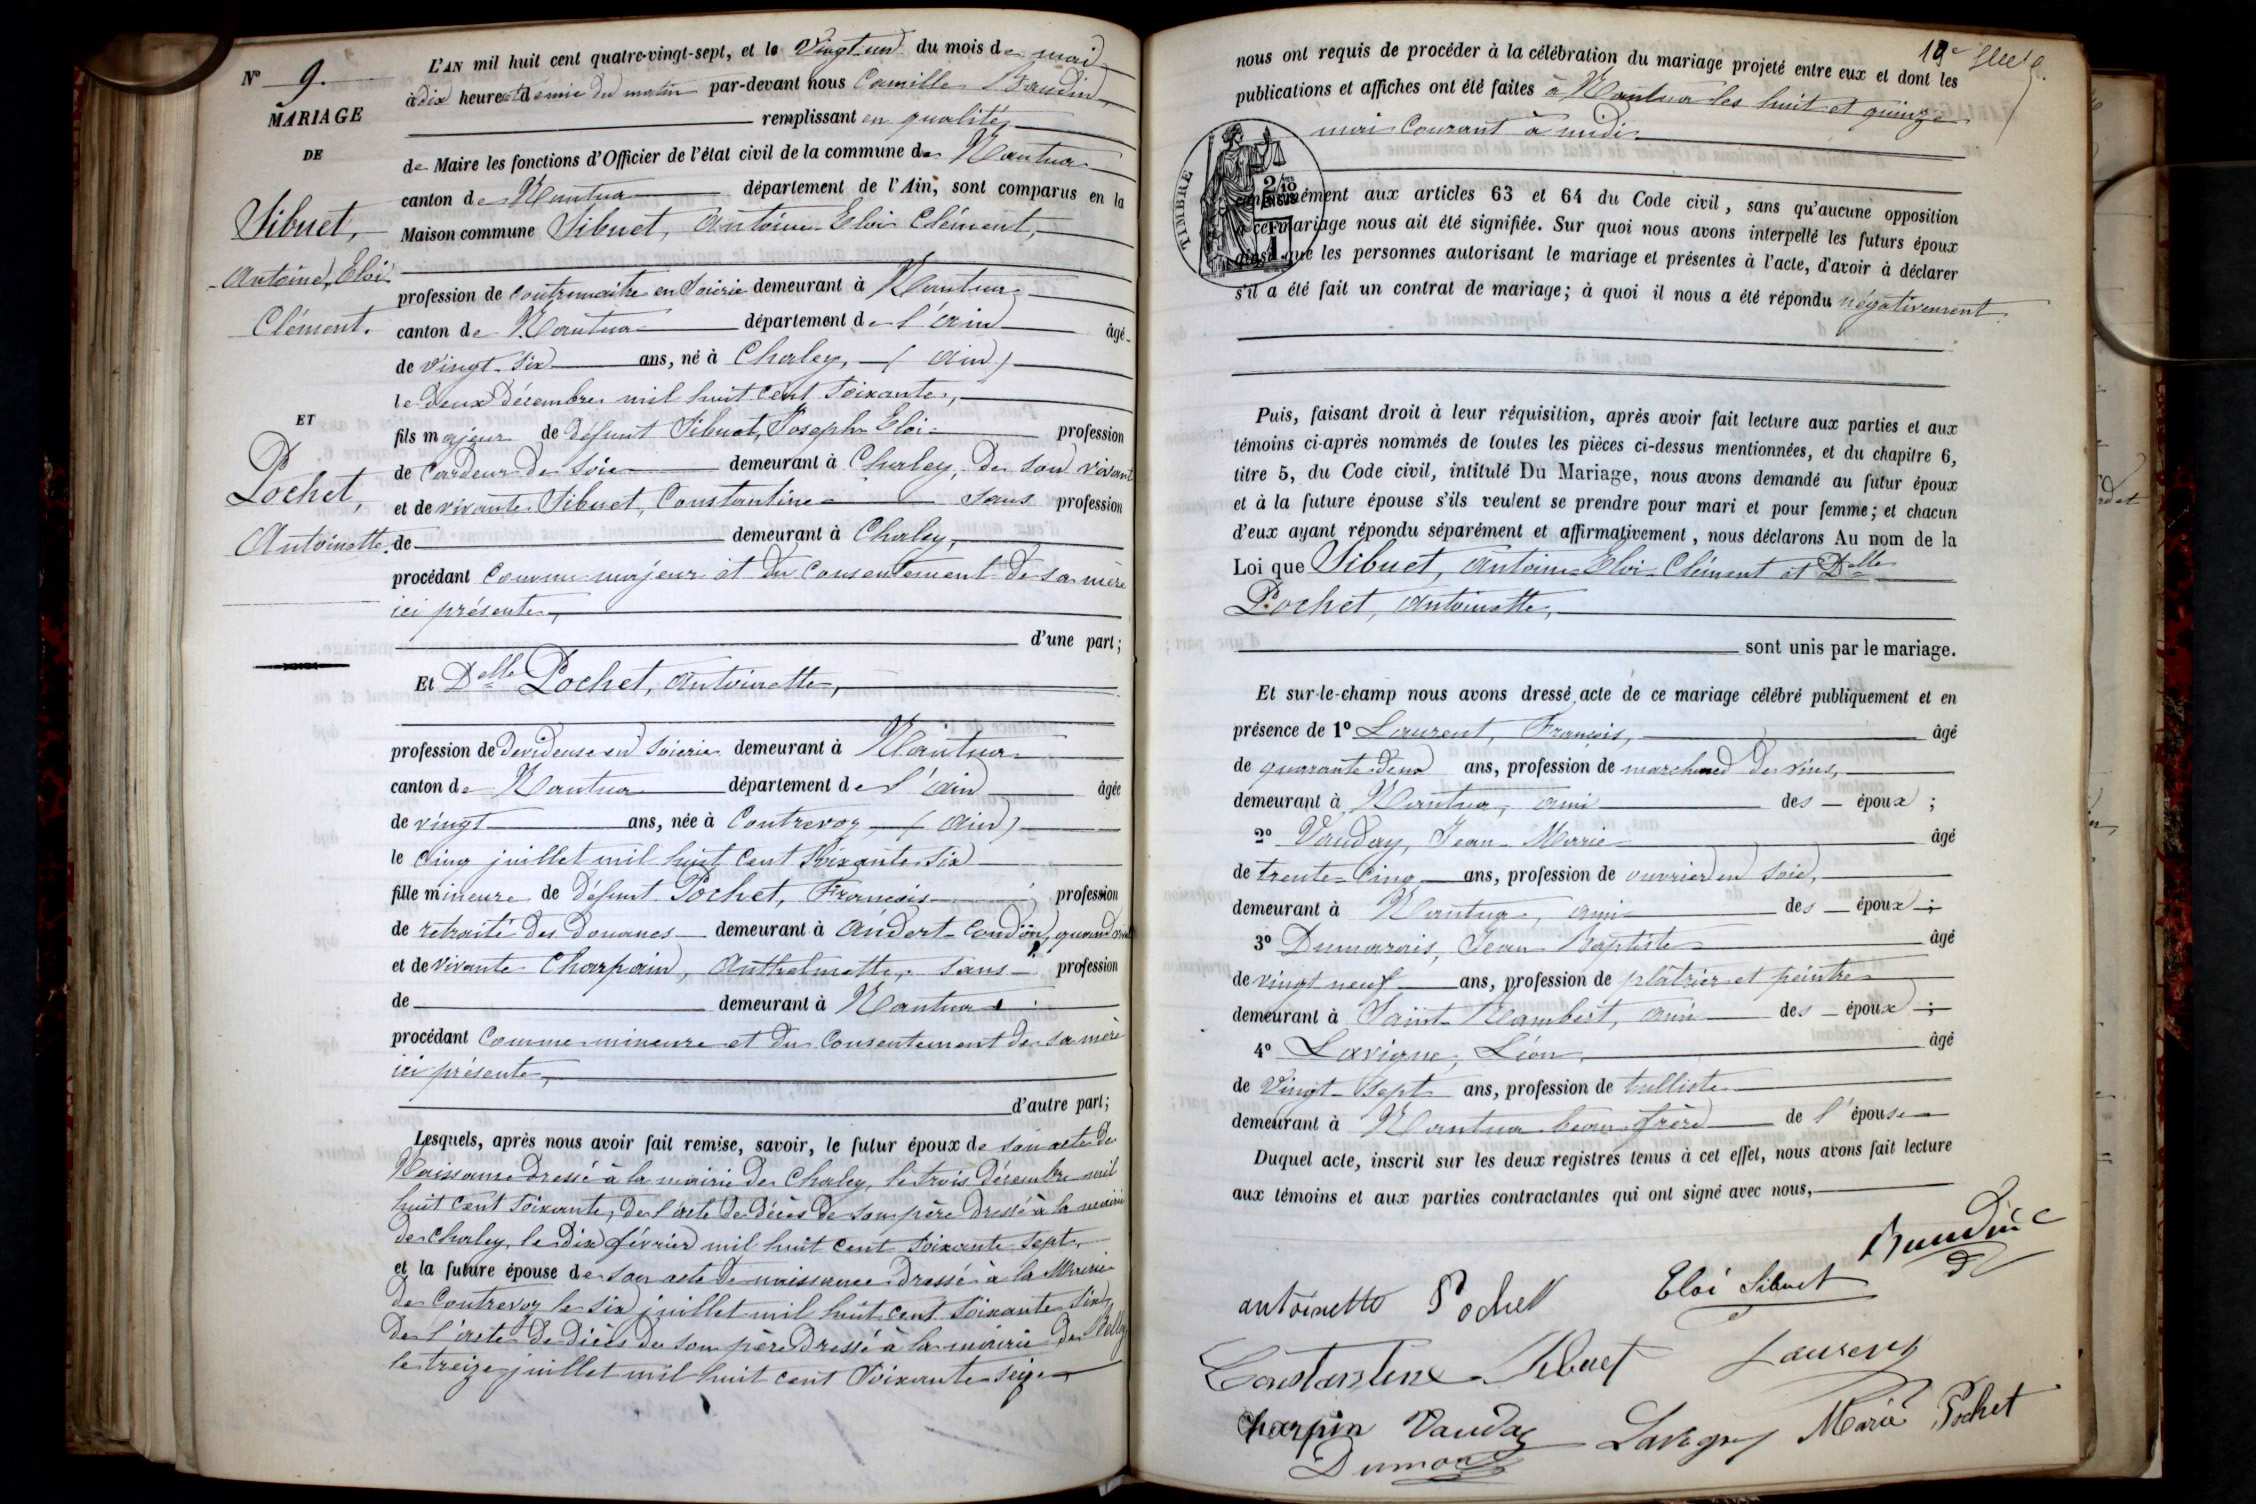 N° 9.
MARIAGE
DE
Sibuet,
Antoine, Eloi
Clément.
ET
Pochet,
Antoinette.
L'AN mil huit cent quatre-vingt-sept, et le vingt un du mois de mai
à dix heures et demie du matin par-devant nous Camille Baudin,
remplissant en qualité
de Maire les fonctions d'Officier de l'état civil de la commune de Nantua
canton de Nantua département de l'Ain, sont comparus en la
Maison commune Sibuet, Antoine Eloi Clément,
profession de contremaître en soierie demeurant à Nantua
canton de Nantua département de l'Ain âgé
de vingt-six ans, né à Chaley, (Ain)
le deux décembre mil huit cent soixante,
fils majeur de défunt Sibuet, Joseph Eloi profession
de cardeur de soie demeurant à Chaley, de son vivant
et de vivante Sibuet, Constantine sans profession
de demeurant à Chaley,
procédant comme majeur et du consentement de sa mère
ici présente,
d'une part;
Et Delle Pochet, Antoinette,
profession de devideuse en soierie demeurant à Nantua
canton de Nantua département de l'Ain âgée
de vingt ans, née à Contrevoz (Ain)
le cinq juillet mil huit cent soixante six
fille mineure de défunt Pochet, François profession
de retraité des Douanes demeurant à Andert-Condon, quand vivait
et de vivante Charpain, Anthelmette, sans profession
de demeurant à Nantua
procédant comme mineure et du consentement de sa mère
ici présente,
d'autre part;
Lesquels, après nous avoir fait remise, savoir, le futur époux de son acte de
Naissance dressé à la mairie de Chaley, le trois Décembre mil
huit cent soixante, de l'acte de décès de son père dressé à la mairie
de Chaley, le dix février mil huit cent soixante sept,
et la future épouse de son acte de naissance dressé à la Mairie
de Contrevoz le six juillet mil huit cent soixante six,
de l'acte de décès de son père dressé à la mairie de Belley
le treize juillet mil huit cent soixante seize
nous ont requis de procéder à la célébration du mariage projeté entre eux et dont les
publications et affiches ont été faites à Nantua les huit et quinze
mai courant à midi
TIMBRE
conformément aux articles 63 et 64 du Code civil, sans qu'aucune opposition
à ce mariage nous ait été signifiée. Sur quoi nous avons interpellé les futurs époux
ainsi que les personnes autorisant le mariage et présentes à l'acte, d'avoir à déclarer
s'il a été fait un contrat de mariage; à quoi il nous a été répondu négativement.
Puis, faisant droit à leur réquisition, après avoir fait lecture aux parties et aux
témoins ci-après nommés de toutes les pièces ci-dessus mentionnées, et du chapitre 6,
titre 5, du Code civil, intitulé Du Mariage, nous avons demandé au futur époux
et à la future épouse s'ils veulent se prendre pour mari et pour femme; et chacun
d'eux ayant répondu séparément et affirmativement, nous déclarons Au nom de la
Loi que Sibuet, Antoine Eloi Clément et Delle
Pochet, Antoinette,
sont unis par le mariage.
Et sur-le-champ nous avons dressé acte de ce mariage célébré publiquement et en
présence de 1° Laurent, François, âgé
de quarante deux ans, profession de marchand de vins,
demeurant à Nantua, ami des époux;
2° Vauday, Jean Marie âgé
de trente-cinq ans, profession de ouvrier en soie,
demeurant à Nantua, ami des époux;
3° Dumarais, Jean Baptiste âgé
de vingt neuf ans, profession de plâtrier et peintre
demeurant à Saint-Rambert, ami des époux;
4° Lavigne, Léon, âgé
de vingt-sept ans, profession de tulliste
demeurant à Nantua beau-frère de l'épouse
Duquel acte, inscrit sur les deux registres tenus à cet effet, nous avons fait lecture
aux témoins et aux parties contractantes qui ont signé avec nous,
Baudin C
antoinette Pochet Eloi Sibuet
Constantine Sibuet Laurent
Charpin Vauday Lavigne Marie Pochet